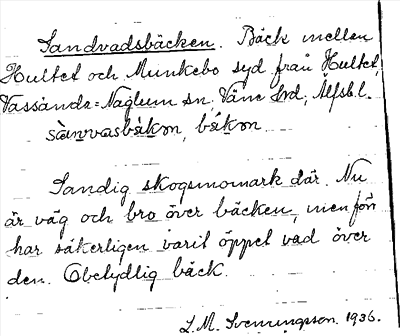 Sandvadsbäcken. Bäck mellan
Hultet och Munkebo syd från Hultet,
Vassända-Naglum sn, Väne hrd, Älfsb.l.
sànvasbäkən, bäkən
Sandig skogsmomark där. Nu
är väg och bro över bäcken, men förr
har säkerligen varit öppet vad över
den. Obetydlig bäck.
L.M. Svenungsson. 1936.